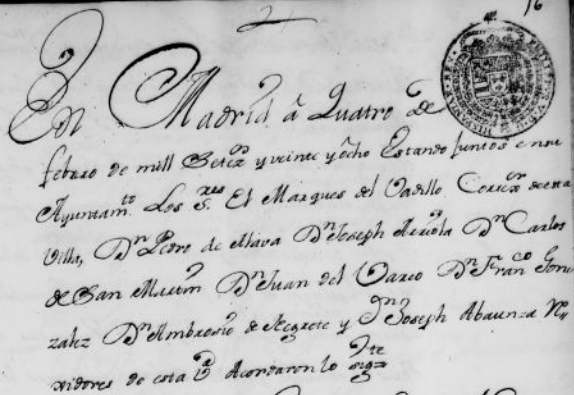 16
En Madrid â Quatro de
febrero de mill Setez.os y veinte y ôcho Estando juntos en su
Ayuntam.to Los S.res El Marques del Vadillo Correx.or de esta
Villa, D.n Pedro de Alava D.n Joseph D.n Carlos
de San Martin D.n Juan del D.n Fran.co Gon
zalez D.n Ambrosio de Negrete y D.n Joseph Abaunza Re
xidores de esta V.a Acordaron lo sig.te